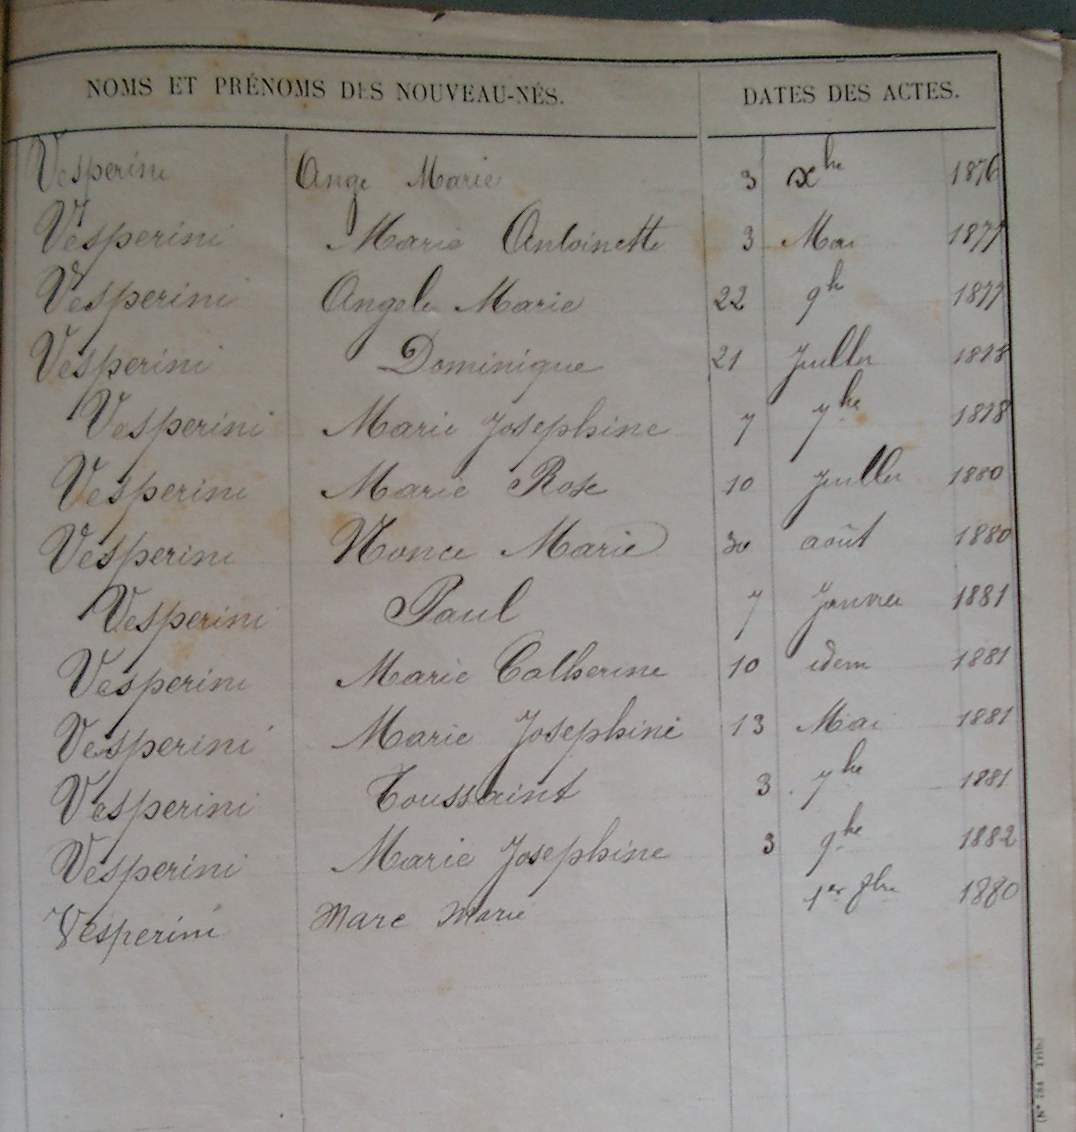 NOMS ET PRÉNOMS DES NOUVEAU-NÉS. DATES DES ACTES.
Vesperini Ange Marie 3 xbre 1876
Vesperini Marie Antoinette 3 Mai 1877
Vesperini Angele Marie 22 9bre 1877
Vesperini Dominique 21 Juillet 1878
Vesperini Marie Josephine 7 7bre 1878
Vesperini Marie Rose 10 Juillet 1880
Vesperini Nonce Marie 30 août 1880
Vesperini Paul 7 Janvier 1881
Vesperini Marie Catherine 10 idem 1881
Vesperini Marie Josephine 13 Mai 1881
Vesperini Toussaint 3 7bre 1881
Vesperini Marie Josephine 3 9bre 1882
Vesperini Marc Marie 1er 8bre 1880